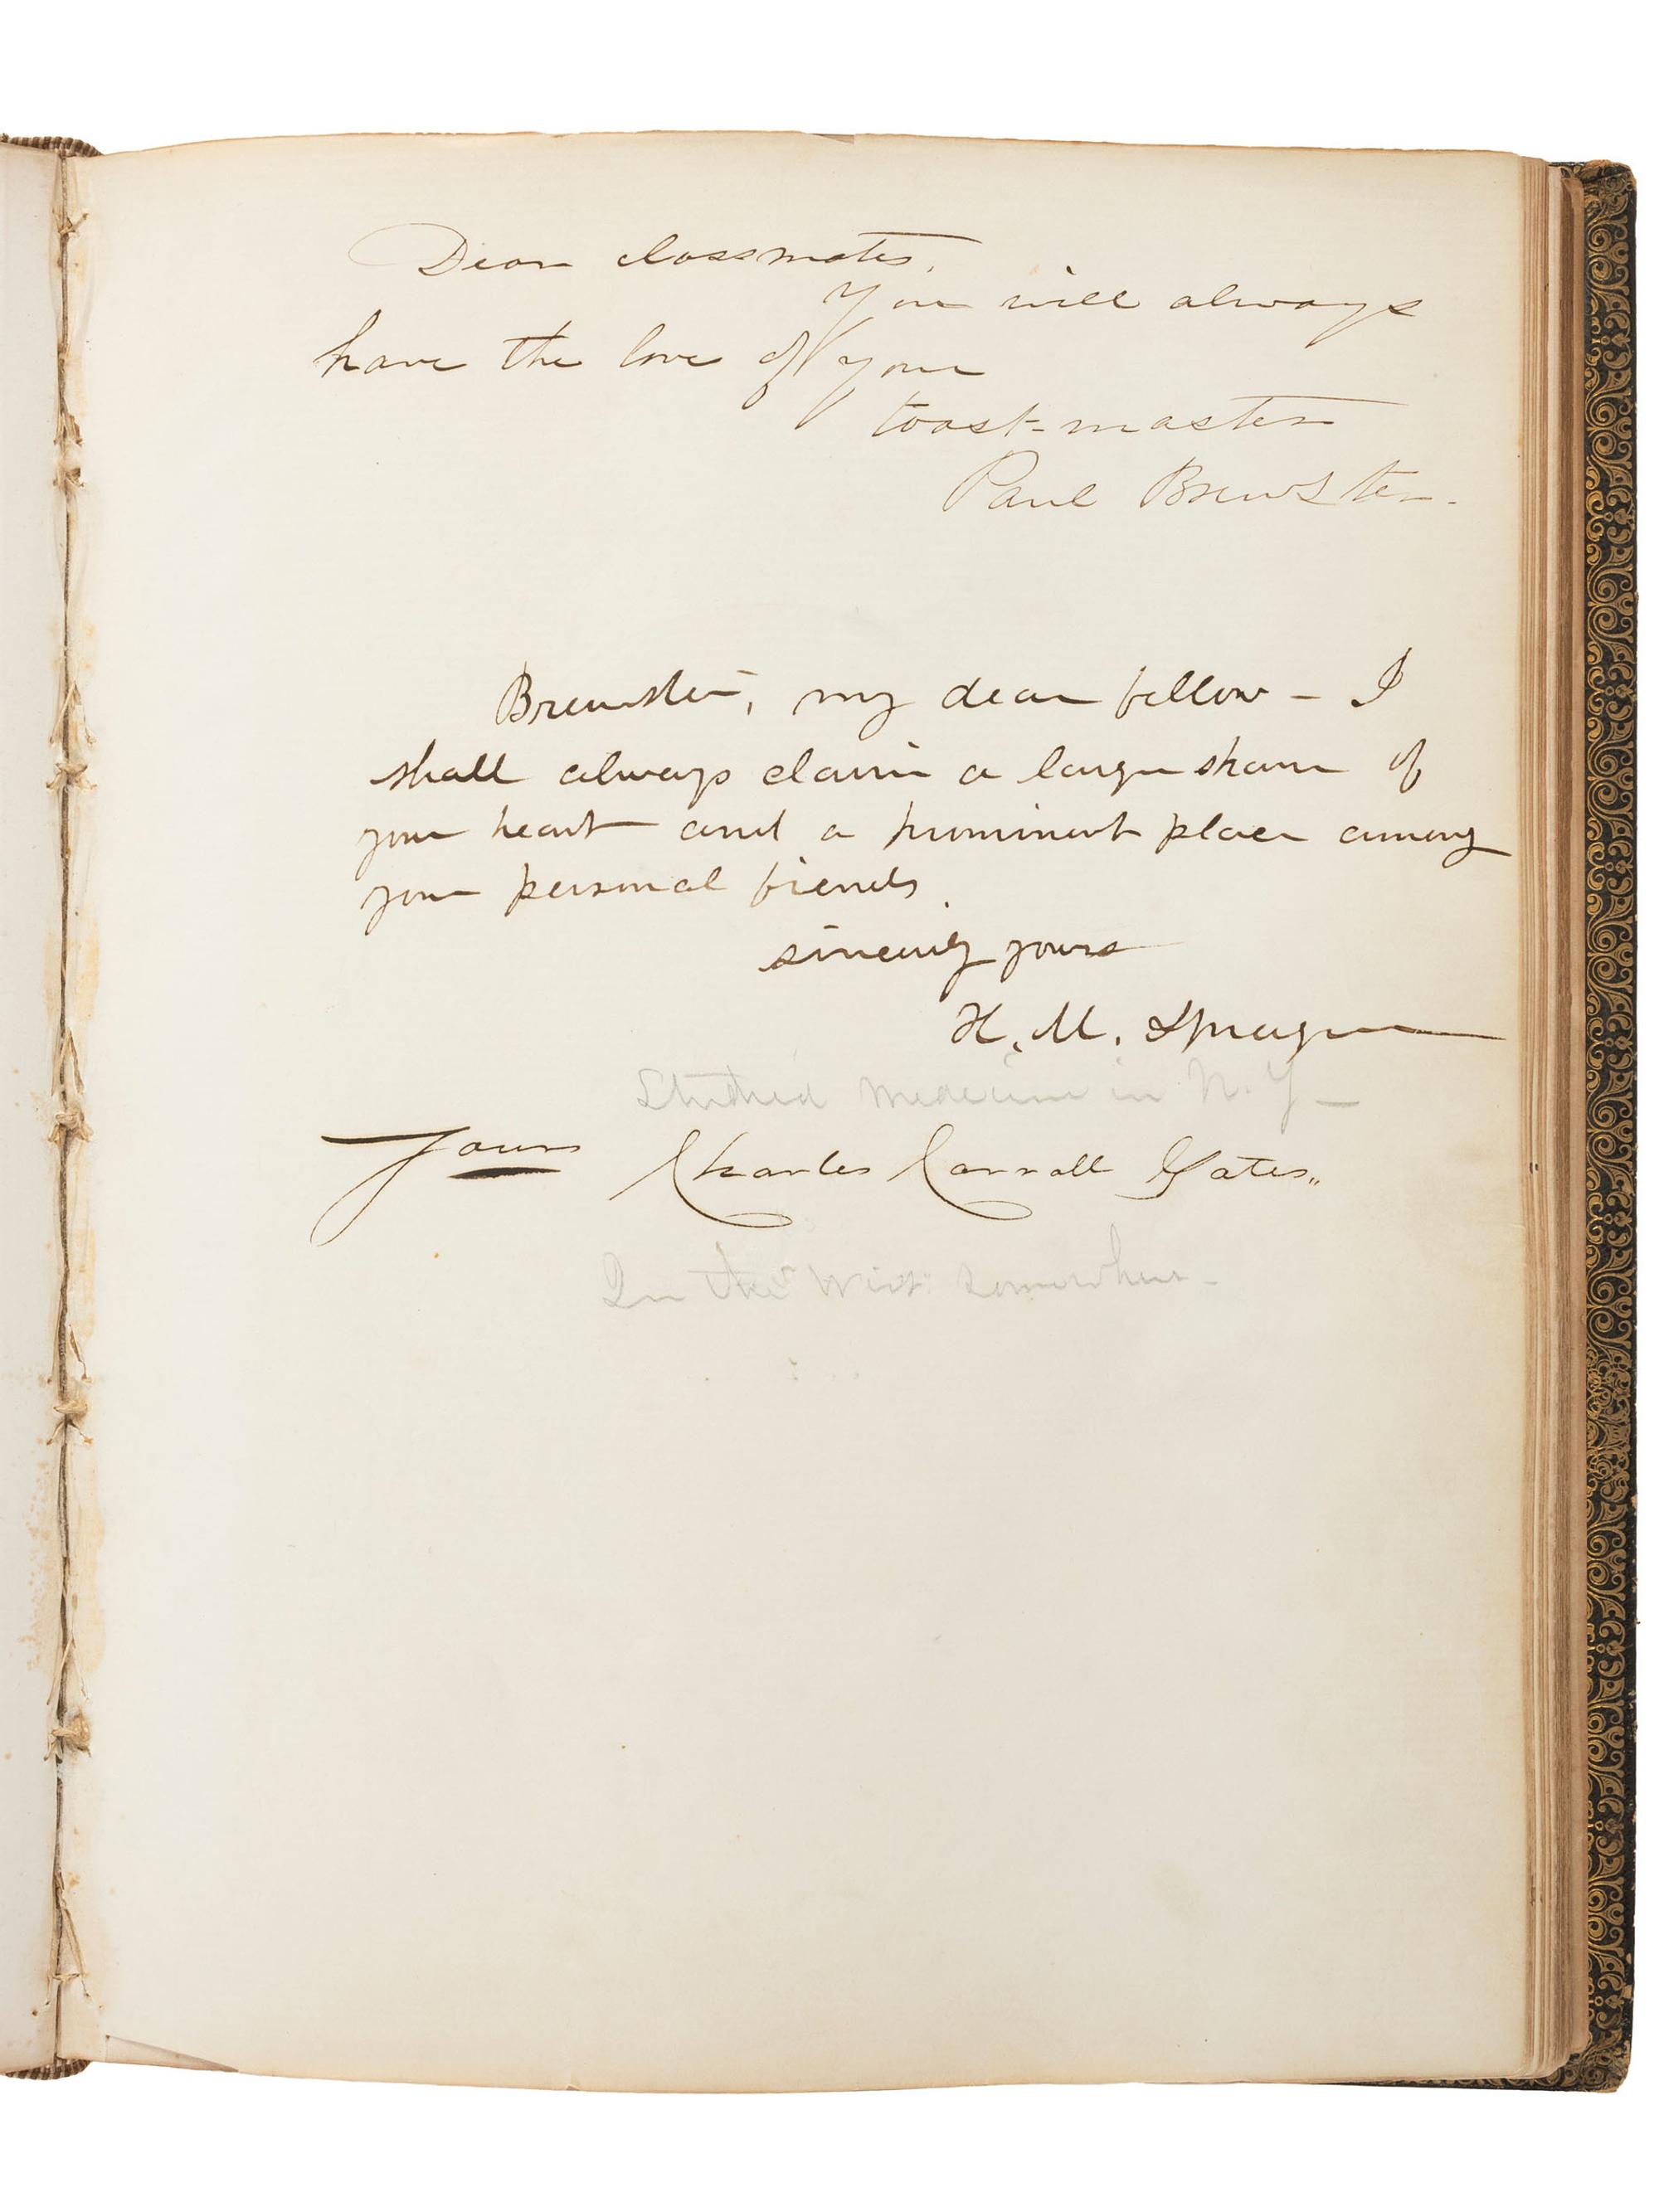 Dear classmates,
You will always
have the love of your
toast-master
Paul Brewster.
Brewster, my dear fellow – I
shall always claim a large share of
your heart and a prominent place among
your personal friends.
sincerely yours
H. M. Sprague
Studied medicine in N.Y –
Yours Charles Carroll Yates.
In the West somewhere –